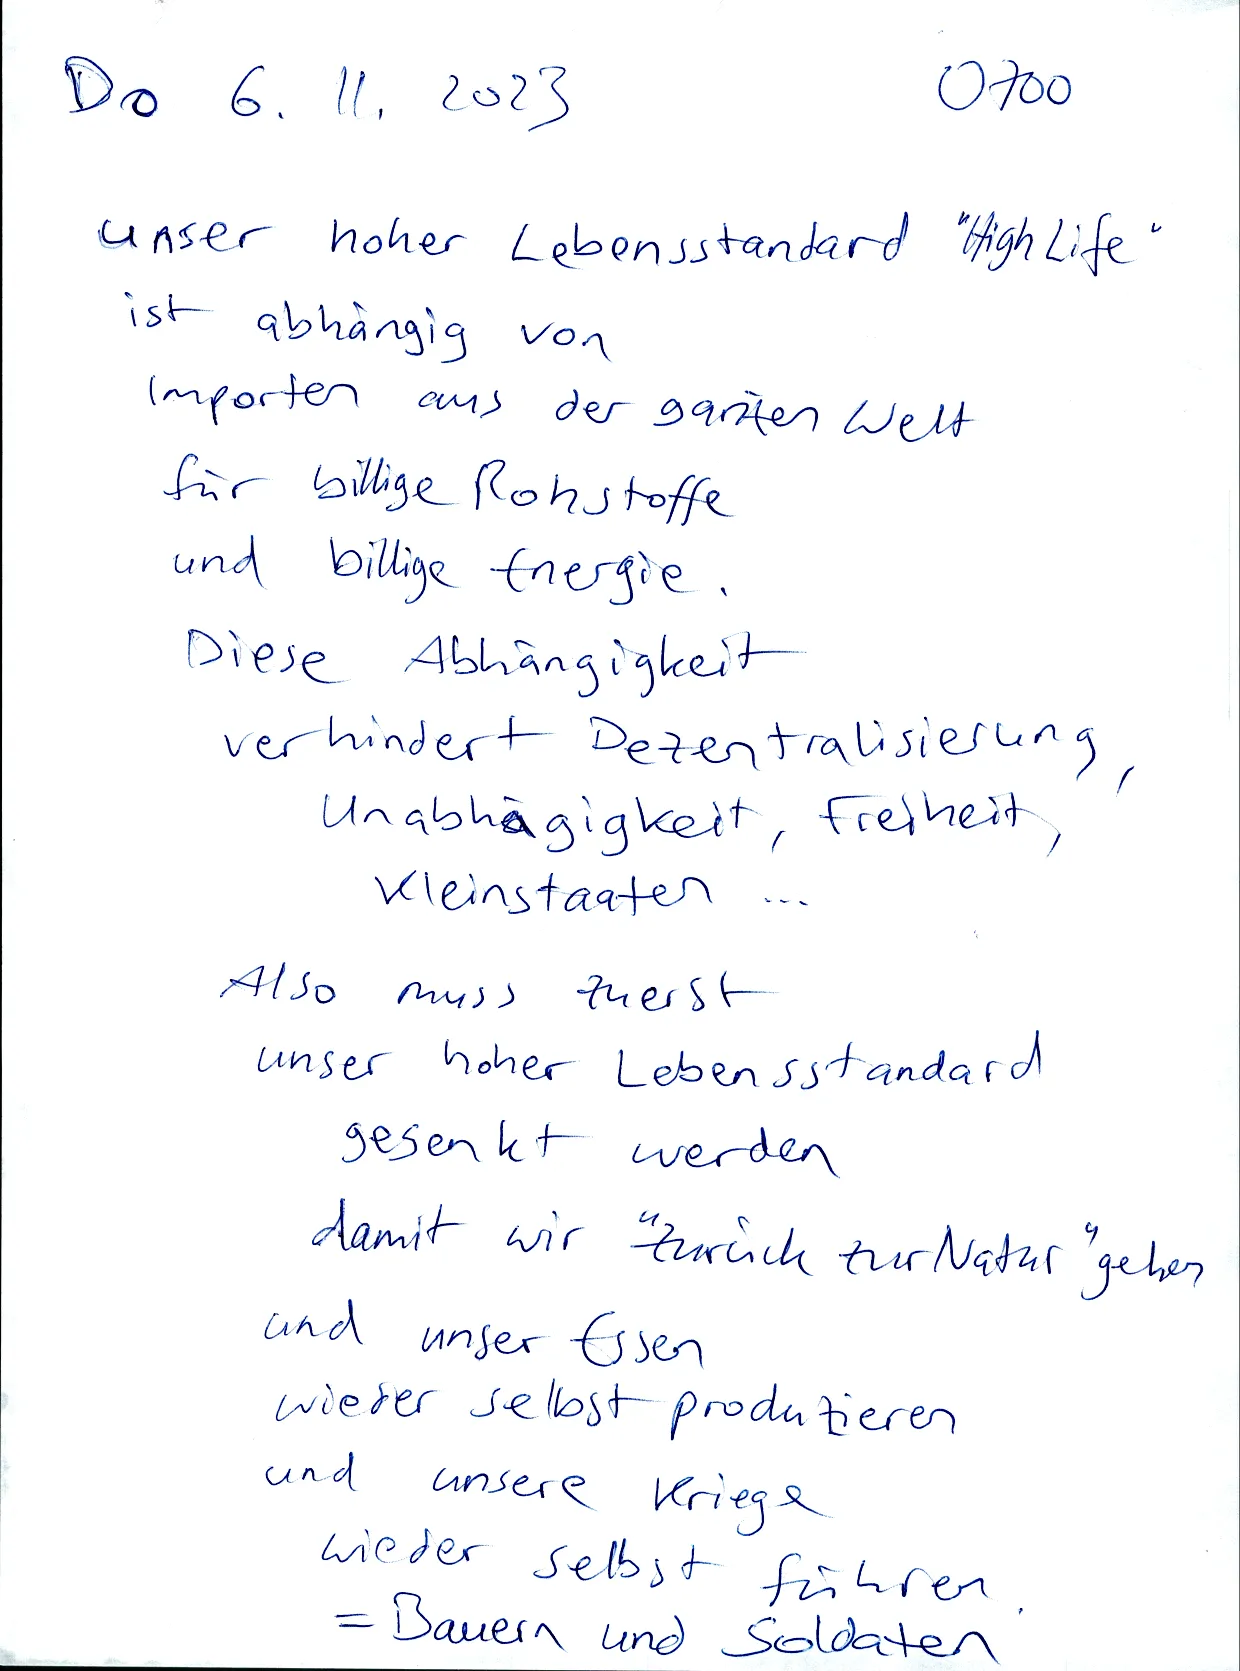 Do 6. 11. 2023 0700
unser hoher Lebensstandard "High Life"
ist abhängig von
Importen aus der ganzen Welt
für billige Rohstoffe
und billige Energie.
Diese Abhängigkeit
verhindert Dezentralisierung,
Unabhägigkeit, Freiheit,
Kleinstaaten ...
Also muss zuerst
unser hoher Lebensstandard
gesenkt werden
damit wir "zurück zur Natur" gehen
und unser Essen
wieder selbst produzieren
und unsere Kriege
wieder selbst führen.
= Bauern und Soldaten